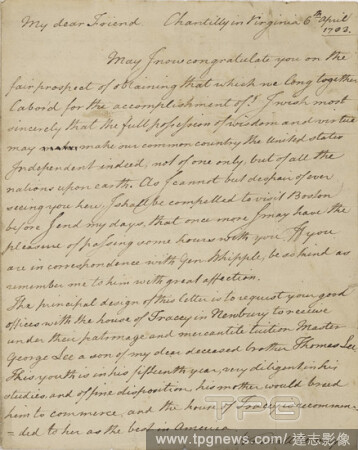 My dear Friend Chantilly in Virginia 6th april
1782.
May I now congratulate you on the
fair prospect of obtaining that which we long together
labord for the accomplishment of? I wish most
sincerely that the full possession of wisdom and virtue
may make our common country the United States
Independent indeed, not of one only, but of all the
nations upon earth. As I cannot but despair of ever
seeing you here, I shall be compelled to visit Boston
before I end my days, that once more I may have the
pleasure of passing some hours with you. If you
are in correspondence with Gen. Whipple, be so kind as
remember me to him with great affection.
The principal design of this letter is to request your good
offices with the house of Tracey in Newbury to receive
under their patronage and mercantile tuition Master
George Lee a son of my dear deceased brother Thomas Lee.
This youth is in his fifteenth year, very diligent in his
studies and of fine disposition, his mother would breed
him to commerce, and the house of Tracey is recommen=
=ded to her as the best in America
TPG
www.tpgnews.com 達志影像